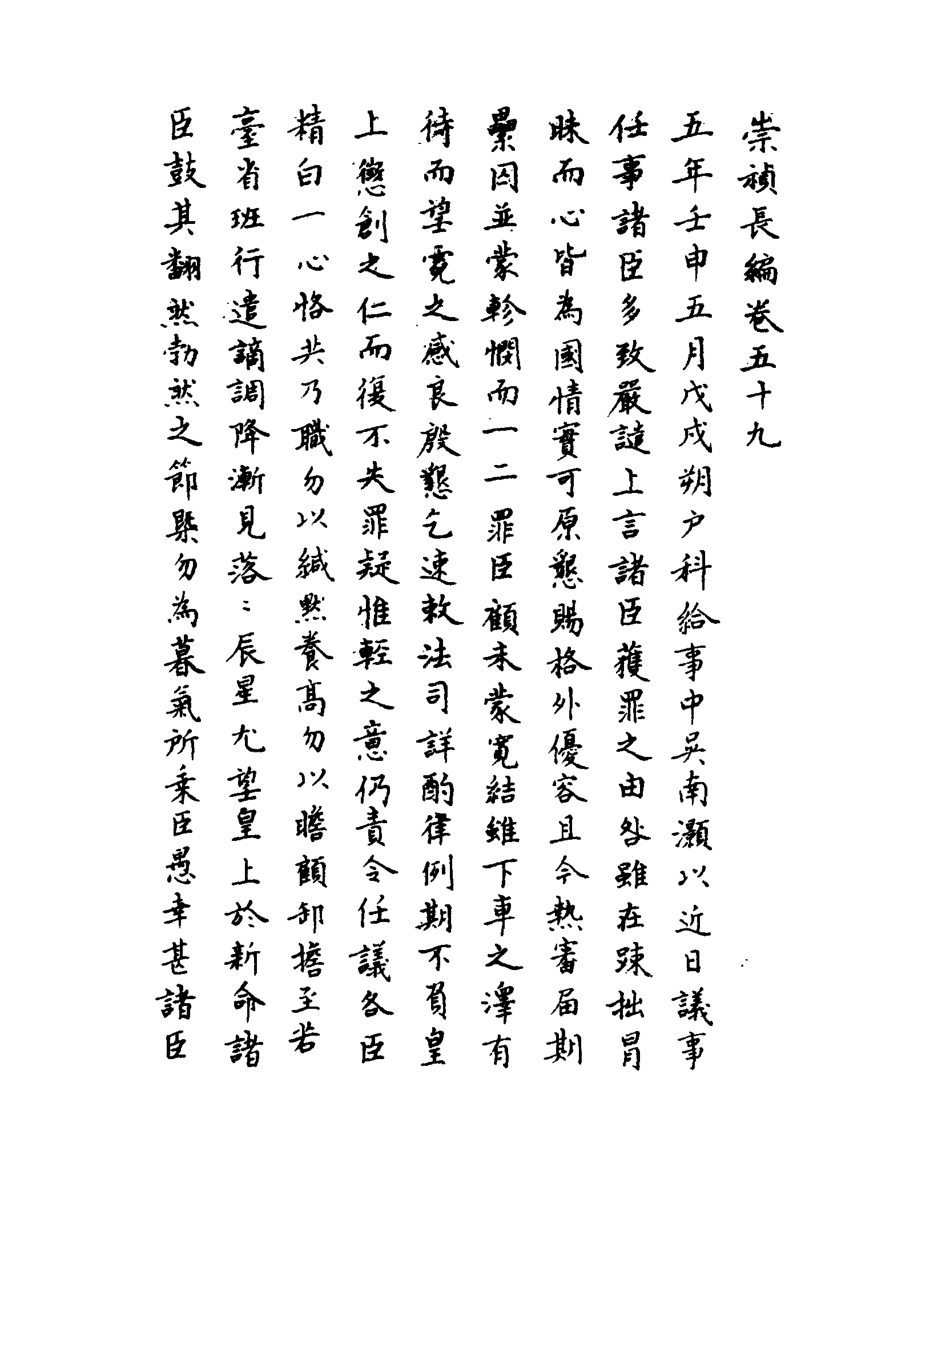 崇禎長編卷五十九
五年壬申五月戊戌朔户科給事中吳南灝以近日議事
任事諸臣多致嚴譴上言諸臣獲罪之由咎雖在踈拙冒
昧而心皆為國情實可原懇賜格外優容且今熱審届期
纍囚並蒙軫憫而一二罪臣顧未蒙寬結雖下車之澤有
待而望霓之感良殷懇乞速敕法司詳酌律例期不負皇
上懲創之仁而復不失罪疑惟輕之意仍責令任議各臣
精白一心恪共乃職勿以緘默養高勿以瞻顧卸擔至若
臺省班行遣謫調降漸見落〻辰星尤望皇上於新命諸
臣鼓其翻然勃然之節槩勿為暮氣所乘臣愚幸甚諸臣